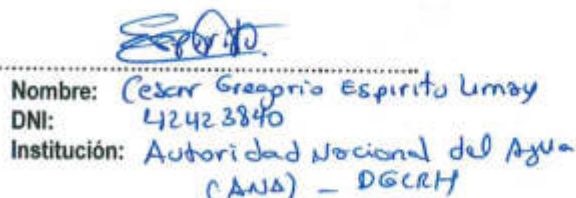 Espirito.
Nombre: Cesar Gregorio Espirito Umay
DNI: 42423840
Institución: Autoridad Nacional del Agua
(ANA) - DGCRH